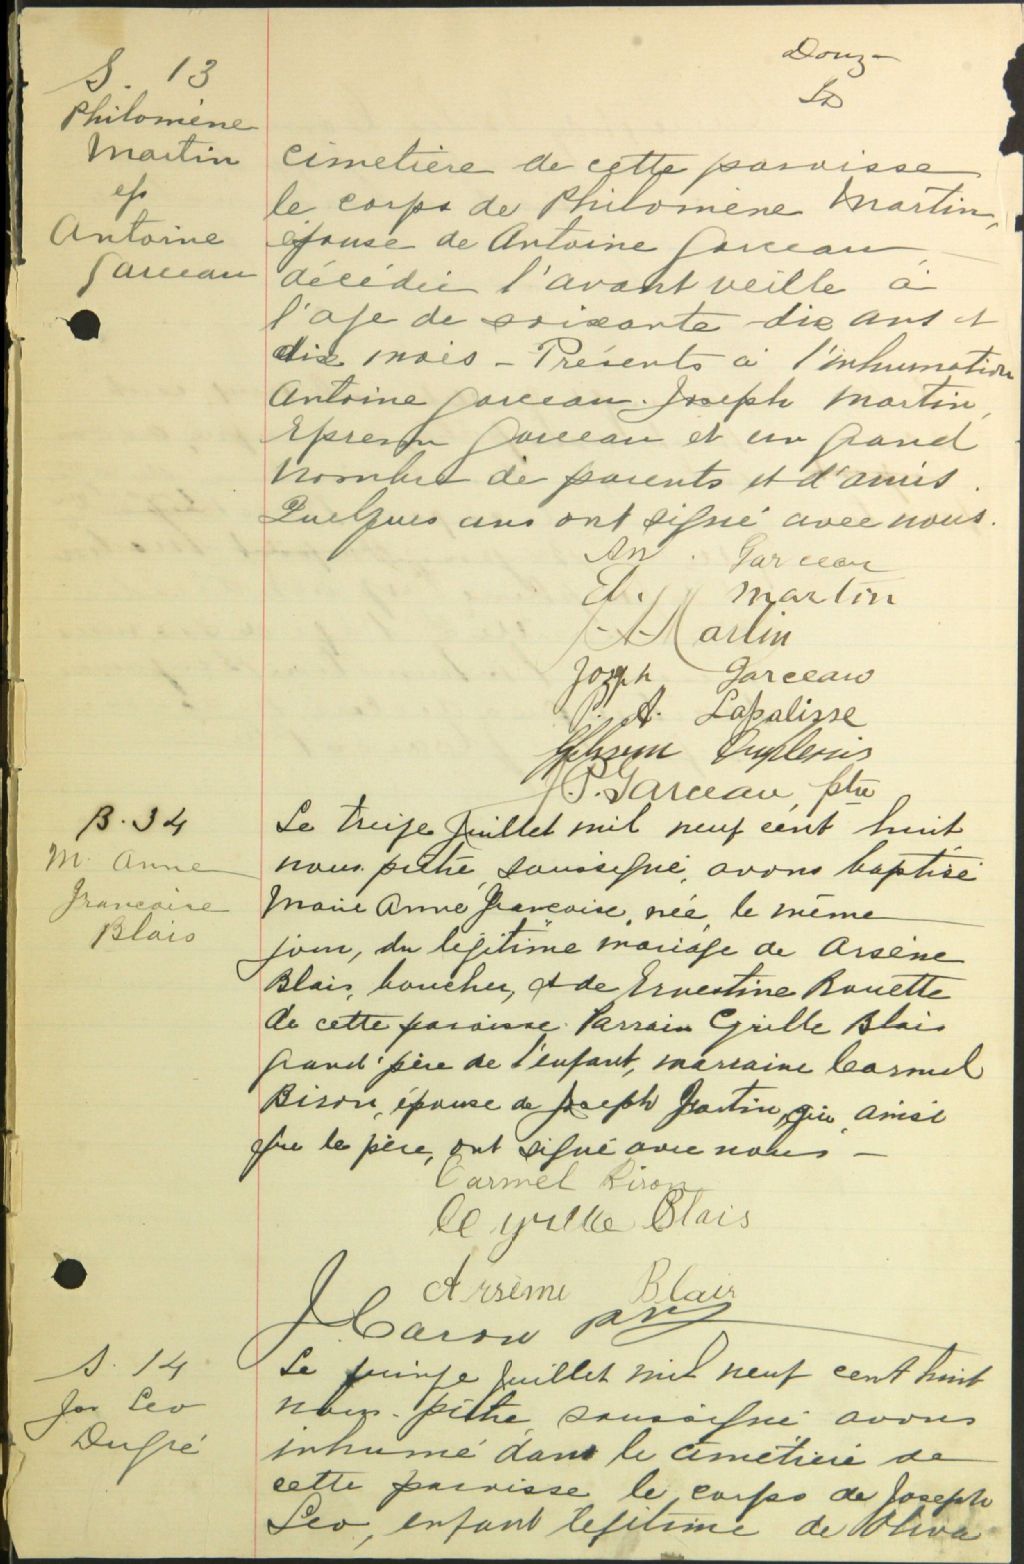 Douz-
S. 13
Philomène
Martin
eps
Antoine
Garceau
cimetière de cette paroisse
le corps de Philomène Martin,
épouse de Antoine Garceau
décédée l'avant veille à
l'age de soixante dix ans et
dix mois - Présents à l'inhumation
Antoine Garceau. Joseph Martin,
Ephrem Garceau et un grand
nombre de parents et d'amis.
Quelques uns ont signé avec nous.
An. Garceau
Martin
Martin
Joseph Garceau
A. Lapalisse
Ephrem Duplessis
J.P. Garceau, ptre
B. 34
M. Anne
Françoise
Blais
Le treize Juillet mil neuf cent huit
nous prêtre, soussigné, avons baptisé
Marie Anne Françoise, née le même
jour, du légitime mariage de Arsène
Blais, boucher, et de Ernestine Rouette
de cette paroisse. Parrain Cyrille Blais
grand'père de l'enfant, marraine Carmel
Bison, épouse de Joseph qui, ainsi
que le père, ont signé avec nous -
Carmel Bison
Cyrille Blais
Arsème Blais
J. Caron ptre
S. 14
Jos Leo
Dugré
Le quinze Juillet mil neuf cent huit
nous prêtre soussigné avons
inhumé dans le cimetière de
cette paroisse le corps de Joseph
Leo, enfant légitime de Oliva